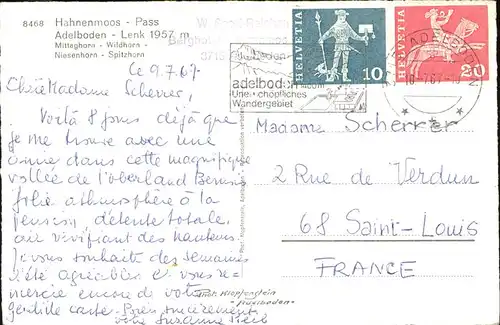 8468 Hahnenmoos - Pass
Adelboden - Lenk 1957 m
Mitteghorn - Wildhorn -
Niesenhorn - Spitzhorn
HELVETIA
10
HELVETIA
20
adelboden 1400 m
Wandergebiet
ADELBODEN
Ce 9.7.67
Chère Madame Scherrer,
Voilà 8 jours déjà que
je me trouve avec une
amie dans cette magnifique
vallée de l'oberland Bernois
jolie athmosphère à la
pension, détente totale,
air vivifiant des hauteurs.
Je vous souhaite des semaines
d'été agréables et vous re-
mercie encore de votre
gentille carte. Bien sincèrement
votre Suzanne
Madame Scherrer
2 Rue de Verdun
68 Saint-Louis
FRANCE
Phot. Klopfenstein
Adelboden